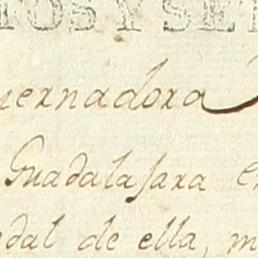 TOS Y SE
uernadora
Guadalajara e
dal de ella, m